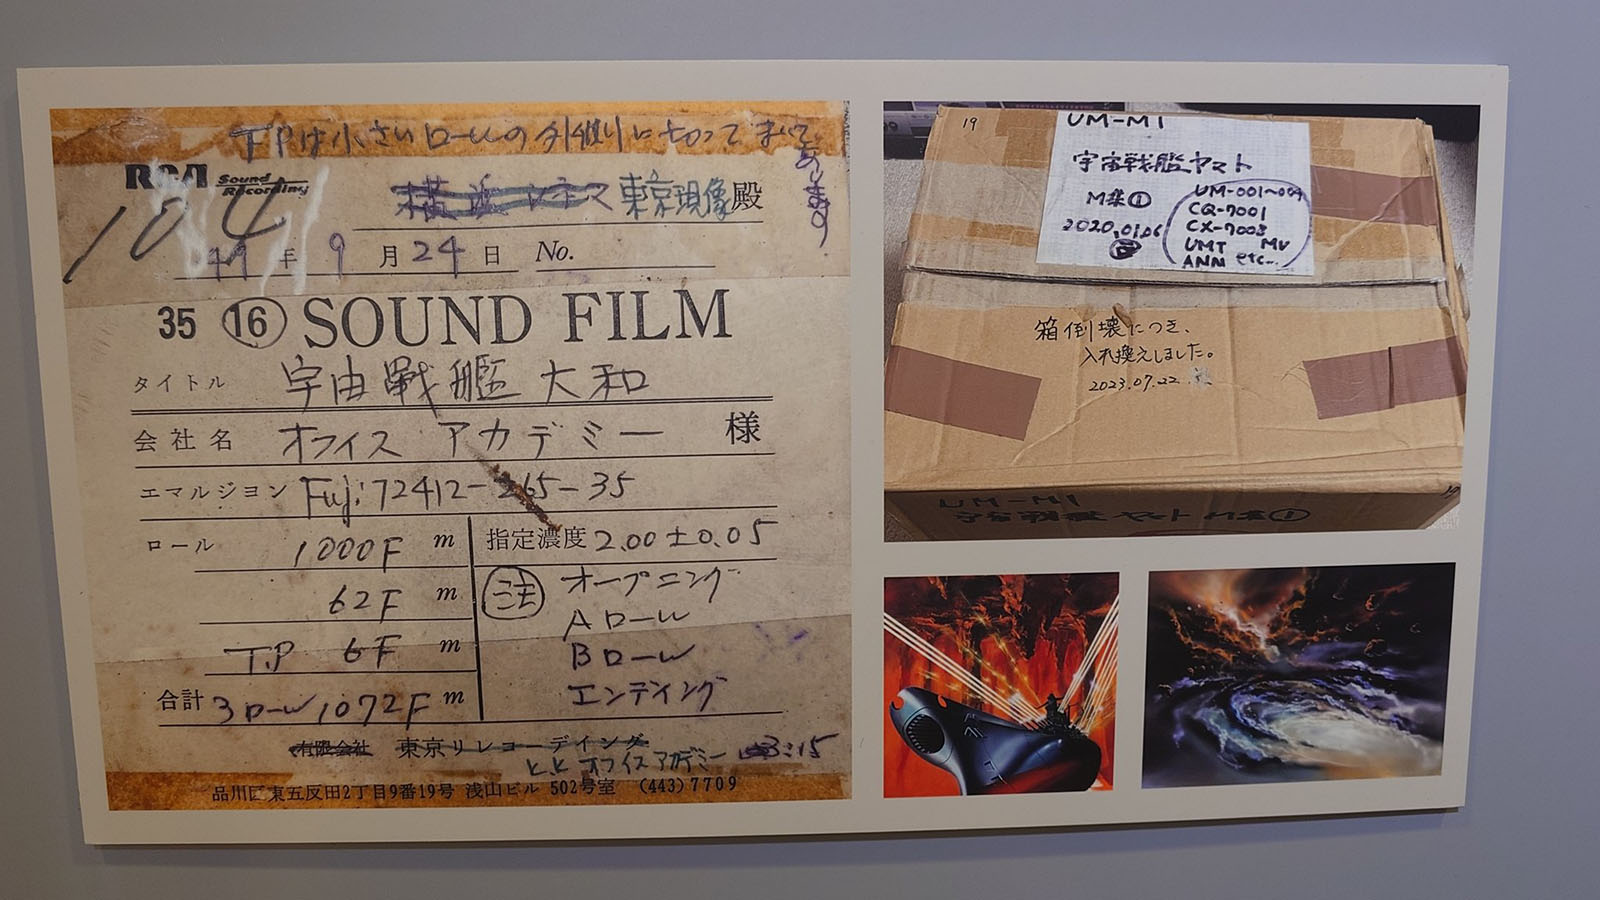 TPは小さいロールの外側に切ってまいて
あります
RCA Sound Recording
104
東京現像殿
49年9月24日 No.
35 16 SOUND FILM
タイトル 宇宙戰艦 大和
会社名 オフィス アカデミー 様
エマルジョン Fuji 72412-265-35
ロール 1,000F m
指定濃度 2.00±0.05
62F m
注 オープニング
Aロール
T.P 6F m
Bロール
合計 3ロール 1072F m
エンディング
有限会社 東京リレコーデイング
オフィスアカデミー 3:15
品川区東五反田2丁目9番19号 浅山ビル 502号室 (443)7709
19
UM-M1
宇宙戦艦ヤマト
M集①
2020.01.06
UM-001~
CQ-7001
CX-7003
UMT MV
ANN etc...
箱倒壊につき、
入れ換えしました。
2023.07.22
UM-M1
宇宙戦艦ヤマト M集①